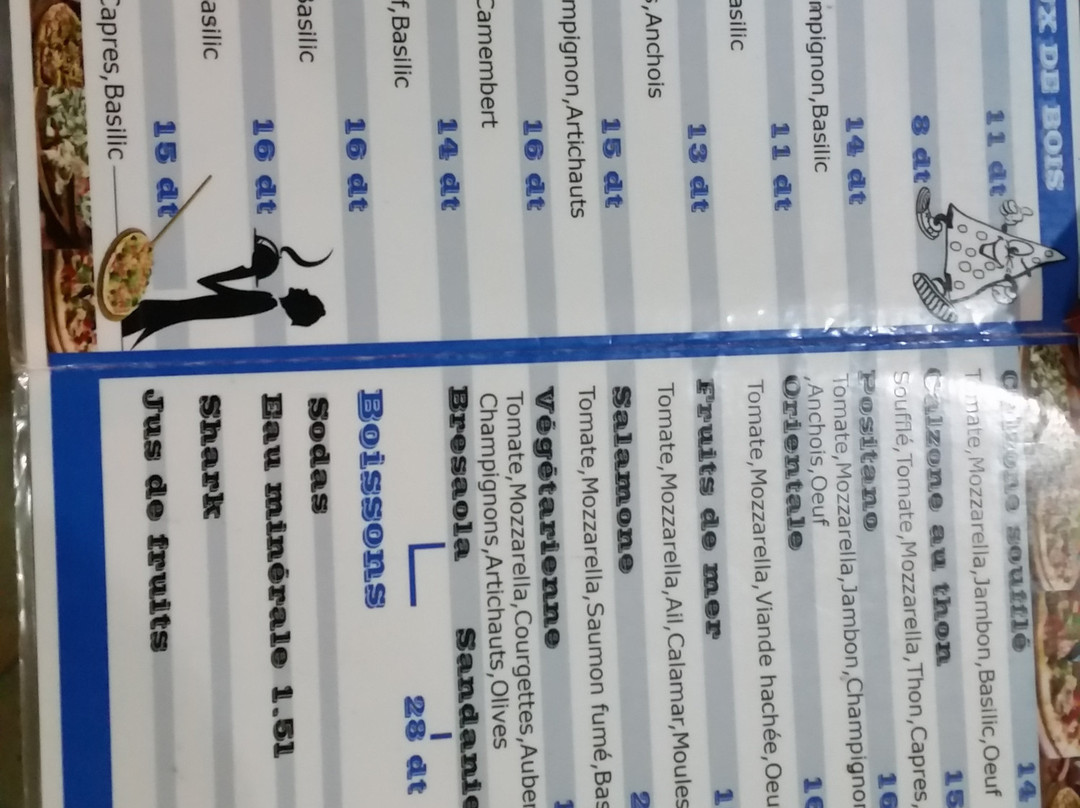 X DE BOIS
11 dt
8 dt
14 dt
mpignon,Basilic
11 dt
asilic
13 dt
,Anchois
15 dt
mpignon,Artichauts
16 dt
Camembert
14 dt
f,Basilic
16 dt
Basilic
16 dt
asilic
15 dt
Capres,Basilic
soufflé
14
Tomate,Mozzarella,Jambon,Basilic,Oeuf
Calzone au thon
15
Soufflé,Tomate,Mozzarella,Thon,Capres,
Positano
16
Tomate,Mozzarella,Jambon,Champignon
,Anchois,Oeuf
Orientale
16
Tomate,Mozzarella,Viande hachée,Oeu
Fruits de mer
1
Tomate,Mozzarella,Ail,Calamar,Moules
Salamone
2
Tomate,Mozzarella,Saumon fumé,Bas
Végétarienne
1
Tomate,Mozzarella,Courgettes,Auber
Champignons,Artichauts,Olives
Bresaola Sandanie
28 dt
Boissons
Sodas
Eau minérale 1.5l
Shark
Jus de fruits